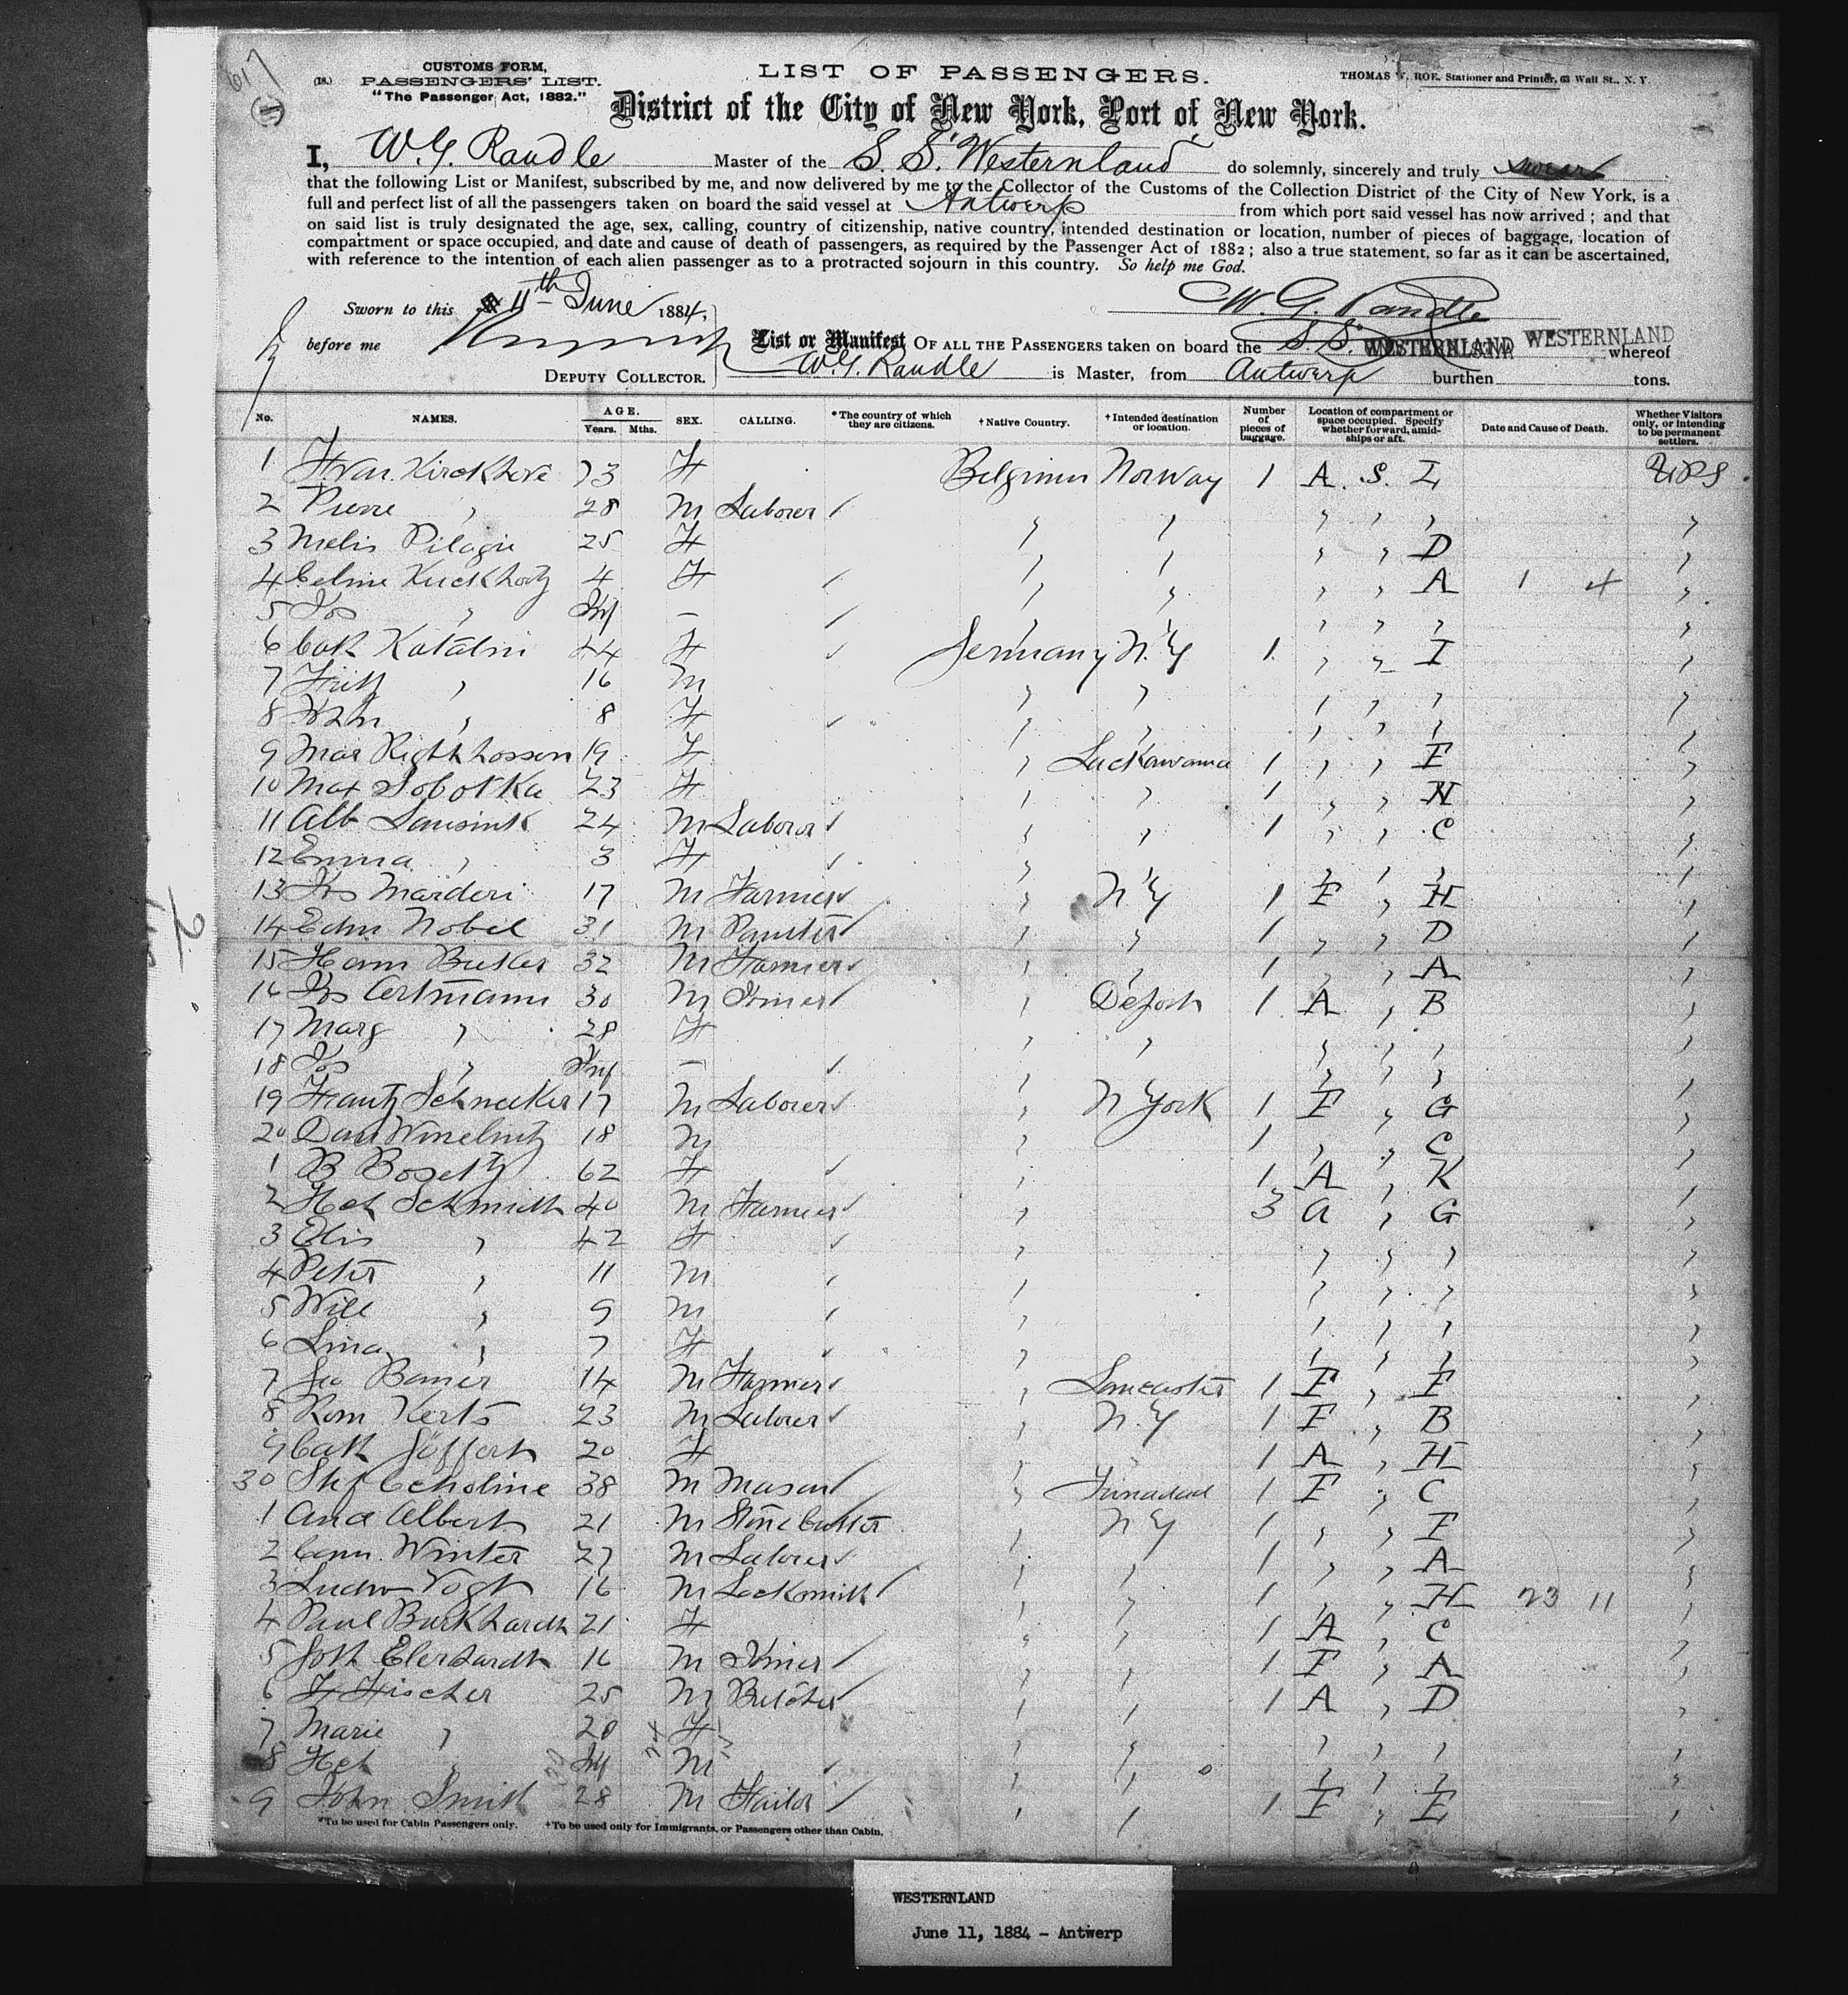 CUSTOMS FORM,
(18.) PASSENGERS' LIST.
"The Passenger Act, 1882."
LIST OF PASSENGERS.
THOMAS W. ROE, Stationer and Printer, 63 Wall St., N. Y.
District of the City of New York, Port of New York.
I, W. G. Randle Master of the S. S. Westernland do solemnly, sincerely and truly swear
that the following List or Manifest, subscribed by me, and now delivered by me to the Collector of the Customs of the Collection District of the City of New York, is a
full and perfect list of all the passengers taken on board the said vessel at Antwerp from which port said vessel has now arrived; and that
on said list is truly designated the age, sex, calling, country of citizenship, native country, intended destination or location, number of pieces of baggage, location of
compartment or space occupied, and date and cause of death of passengers, as required by the Passenger Act of 1882; also a true statement, so far as it can be ascertained,
with reference to the intention of each alien passenger as to a protracted sojourn in this country. So help me God.
Sworn to this 11th June 1884,
W. G. Randle
before me
List or Manifest OF ALL THE PASSENGERS taken on board the S. S. WESTERNLAND WESTERNLAND whereof
DEPUTY COLLECTOR.
W. G. Randle is Master, from Antwerp burthen tons.
No. NAMES. AGE. Years. Mths. SEX. CALLING. *The country of which they are citizens. †Native Country. †Intended destination or location. Number of pieces of baggage. Location of compartment or space occupied. Specify whether forward, amidships or aft. Date and Cause of Death. Whether Visitors only, or intending to be permanent settlers.
1 F 73 F Belgium Norway 1 A. S. I
2 Pierre " 28 M Laborer " " " " " "
3 Melis Pilagie 25 F " " " " D "
4 Celine 4 F " " " " A 1 4 "
5 Jos " Inf — " " " " " "
6 Cath Katalni 44 F Germany N.Y 1 " " I "
7 " 16 M " " " " " "
8 " 8 F " " " " " "
9 Mar 19 F " Lackawana 1 " " E "
10 Max Sobotka 23 F " " 1 " " N "
11 Alb 24 M Laborer " " 1 " " C "
12 Emma " 3 F " " " " " "
13 Jos Marderi 17 M Farmer " N Y 1 F " H "
14 Edm Nobel 31 M " " 1 " " D "
15 Herm Buker 32 M Farmer " " 1 " " A "
16 Jos Artmann 30 M Joiner " 1 A " B "
17 Marg " 28 F " " " " " "
18 Jos " Inf — " " " "
19 Frantz Schnecker 17 M Laborer " N York 1 F " G "
20 Dav 18 M " 1 " " C "
1 B 62 F " 1 A " K
2 Hch Schmidt 40 M Farmer " 3 A " G "
3 Elis " 42 F " " " " "
4 Peter " 11 M " " " " "
5 Will " 9 M " " " " "
6 Lina " 7 F " " " " "
7 Geo 14 M Farmer " Lancaster 1 F " F "
8 Rom Kerts 23 M Laborer " N.Y 1 F " B "
9 Cath 20 F " 1 A " H "
30 38 M Mason " Trinadad 1 F " C "
1 And Albert 21 M Stone Cutter " N Y 1 " " F "
2 Winter 27 M Laborer " " 1 " " A "
3 Ludw Vogt 16 M Locksmith " " 1 " " H 23 11 "
4 Paul Burkhardt 21 F " " 1 A " C "
5 Goth Eberhardt 16 M Joiner " " 1 F " A "
6 F Fischer 25 M Butcher " " 1 A " D "
7 Marie " 20 F " " " " " "
8 Hch " Inf M " " " " " "
9 John Smith 28 M Tailor " " 1 F " E "
*To be used for Cabin Passengers only. †To be used only for Immigrants, or Passengers other than Cabin.
WESTERNLAND
June 11, 1884 - Antwerp